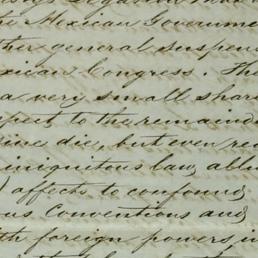 the Mexican Governme
ther general suspens
exican Congress. The
a very small shar
spect to the remaind
sine die, but even re
iniquitous law, all
) affects to confound
us Conventions and
th foreign powers, in